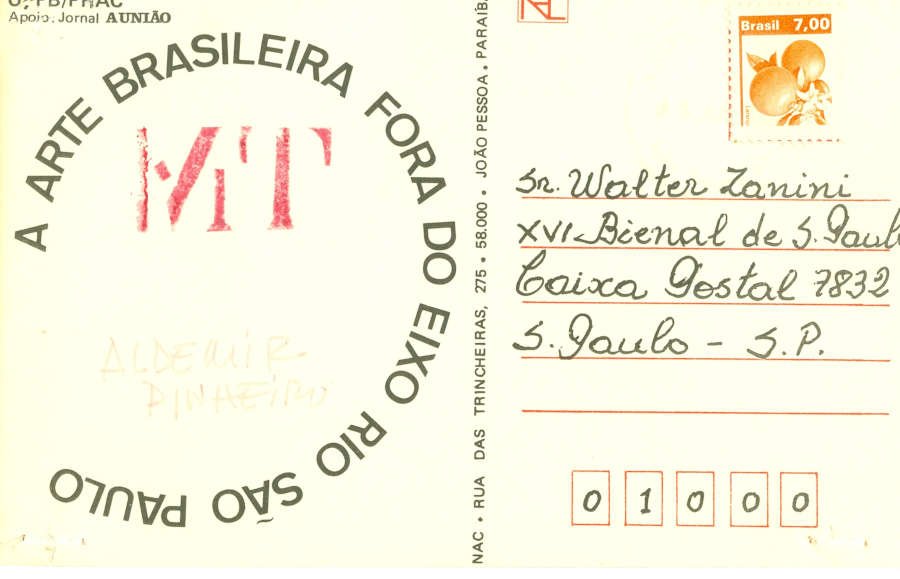 Apoio. Jornal A UNIÃO
A ARTE BRASILEIRA FORA DO EIXO RIO SÃO PAULO
MT
ALDEMIR
PINHEIRO
NAC • RUA DAS TRINCHEIRAS, 275 • 58.000 • JOÃO PESSOA • PARAIBA
Brasil 7,00
Sr. Walter Zanini
XVI Bienal de S. Paulo
Caixa Postal 7832
S. Paulo - S.P.
0 1 0 0 0